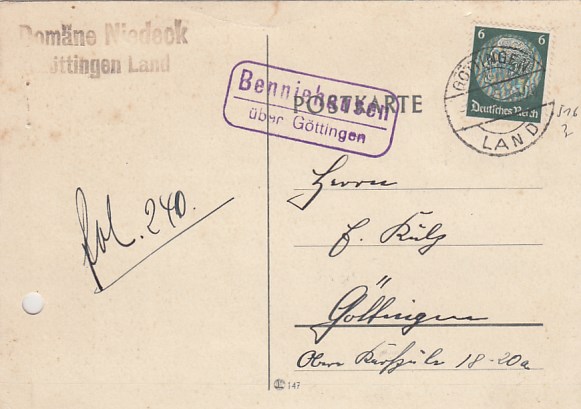 Domäne Niedeck
Göttingen Land
Benniehausen
über Göttingen
POSTKARTE
6 6
Deutsches Reich
GÖTTINGEN
LAND
fol. 240.
Herrn
Külz
Göttingen
Obere 18-20a
147